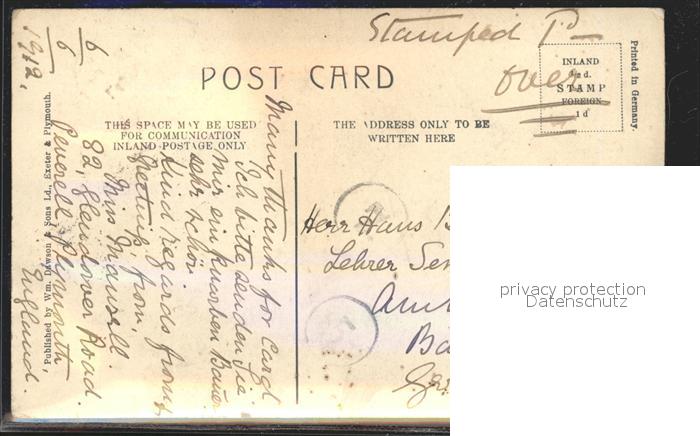 Stamped 1d
over
INLAND
½d.
STAMP
FOREIGN
1d
Printed in Germany.
POST CARD
THIS SPACE MAY BE USED
FOR COMMUNICATION
INLAND POSTAGE ONLY
THE ADDRESS ONLY TO BE
WRITTEN HERE
6/6
1912,
Many thanks for card
Ich bitte senden Sie
mir ein
sehr schön
Kind regards from &
Greetings from,
Miss Mansell.
82, Glendower Road
Peverell Plymouth
England.
Published by Wm. Dawson & Sons Ld., Exeter & Plymouth.
Herr Hans B
Lehrer Sem
Am
Ba
Ger
privacy protection
Datenschutz